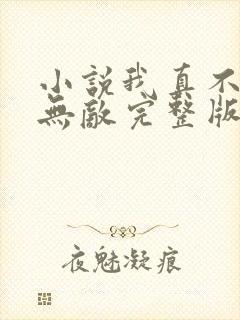 小說我真不
無敵完整版
夜魅凝痕